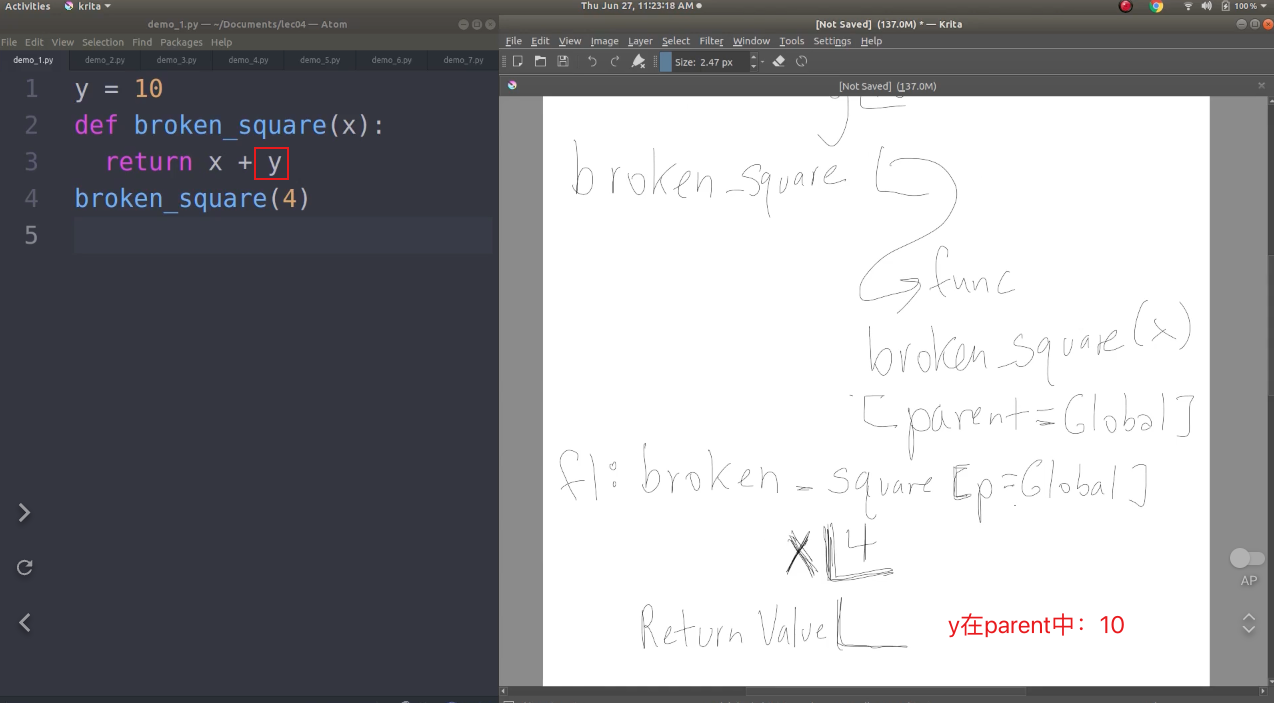 Activities krita Thu Jun 27, 11:23:18 AM 100 %
demo_1.py — ~/Documents/lec04 — Atom
File Edit View Selection Find Packages Help
demo_1.py demo_2.py demo_3.py demo_4.py demo_5.py demo_6.py demo_7.py
1 y = 10
2 def broken_square(x):
3 return x + y
4 broken_square(4)
5
[Not Saved] (137.0M) * — Krita
File Edit View Image Layer Select Filter Window Tools Settings Help
Size: 2.47 px
[Not Saved] (137.0M)
broken_square
func
broken_square(x)
[parent=Global]
f1: broken_square [p=Global]
x 4
Return Value
y在parent中：10
AP